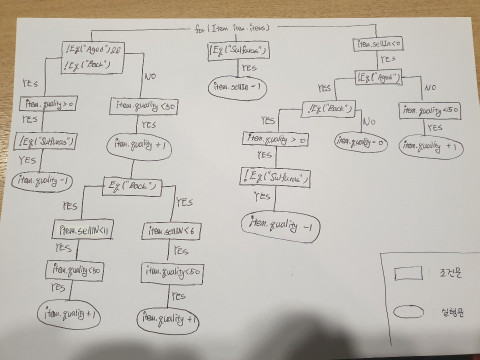 for (Item item: items)
!Eq("Aged") &&
!Eq("Back")
YES
NO
item.quality > 0
YES
!Eq("Sulfuras")
YES
item.quality -1
item.quality < 50
YES
item.quality +1
Eq("Back")
YES
YES
item.sellIN < 11
YES
item.quality < 50
YES
item.quality +1
item.sellIN < 6
YES
item.quality < 50
YES
item.quality +1
!Eq("Sulfuras")
YES
item.sellIn -1
item.sellIN < 0
YES
!Eq("Aged")
YES
NO
!Eq("Back")
YES
NO
item.quality > 0
YES
!Eq("Sulfuras")
YES
item.quality -1
item.quality = 0
item.quality < 50
YES
item.quality +1
조건문
실행문